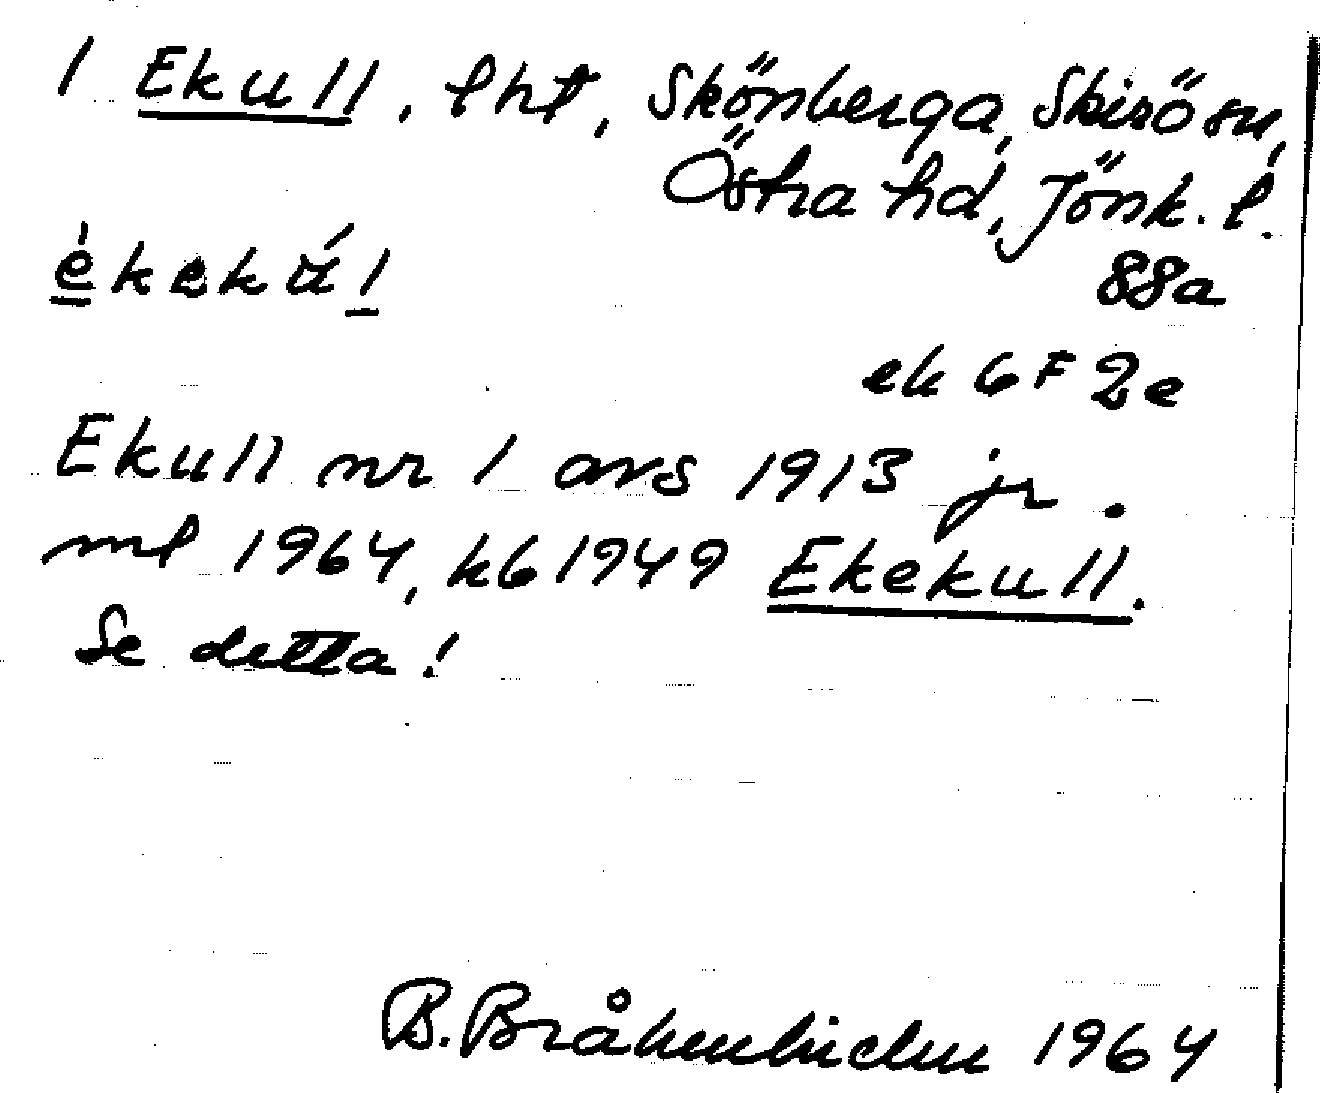 1 Ekull, lht, Skönberga, Skirö sn,
Östra hd, Jönk. l.
ékekúl
88a
ek 6F 2e
Ekull nr 1 avs 1913 jr.
ml 1964, kb 1949 Ekekull.
Se detta!
B. 1964